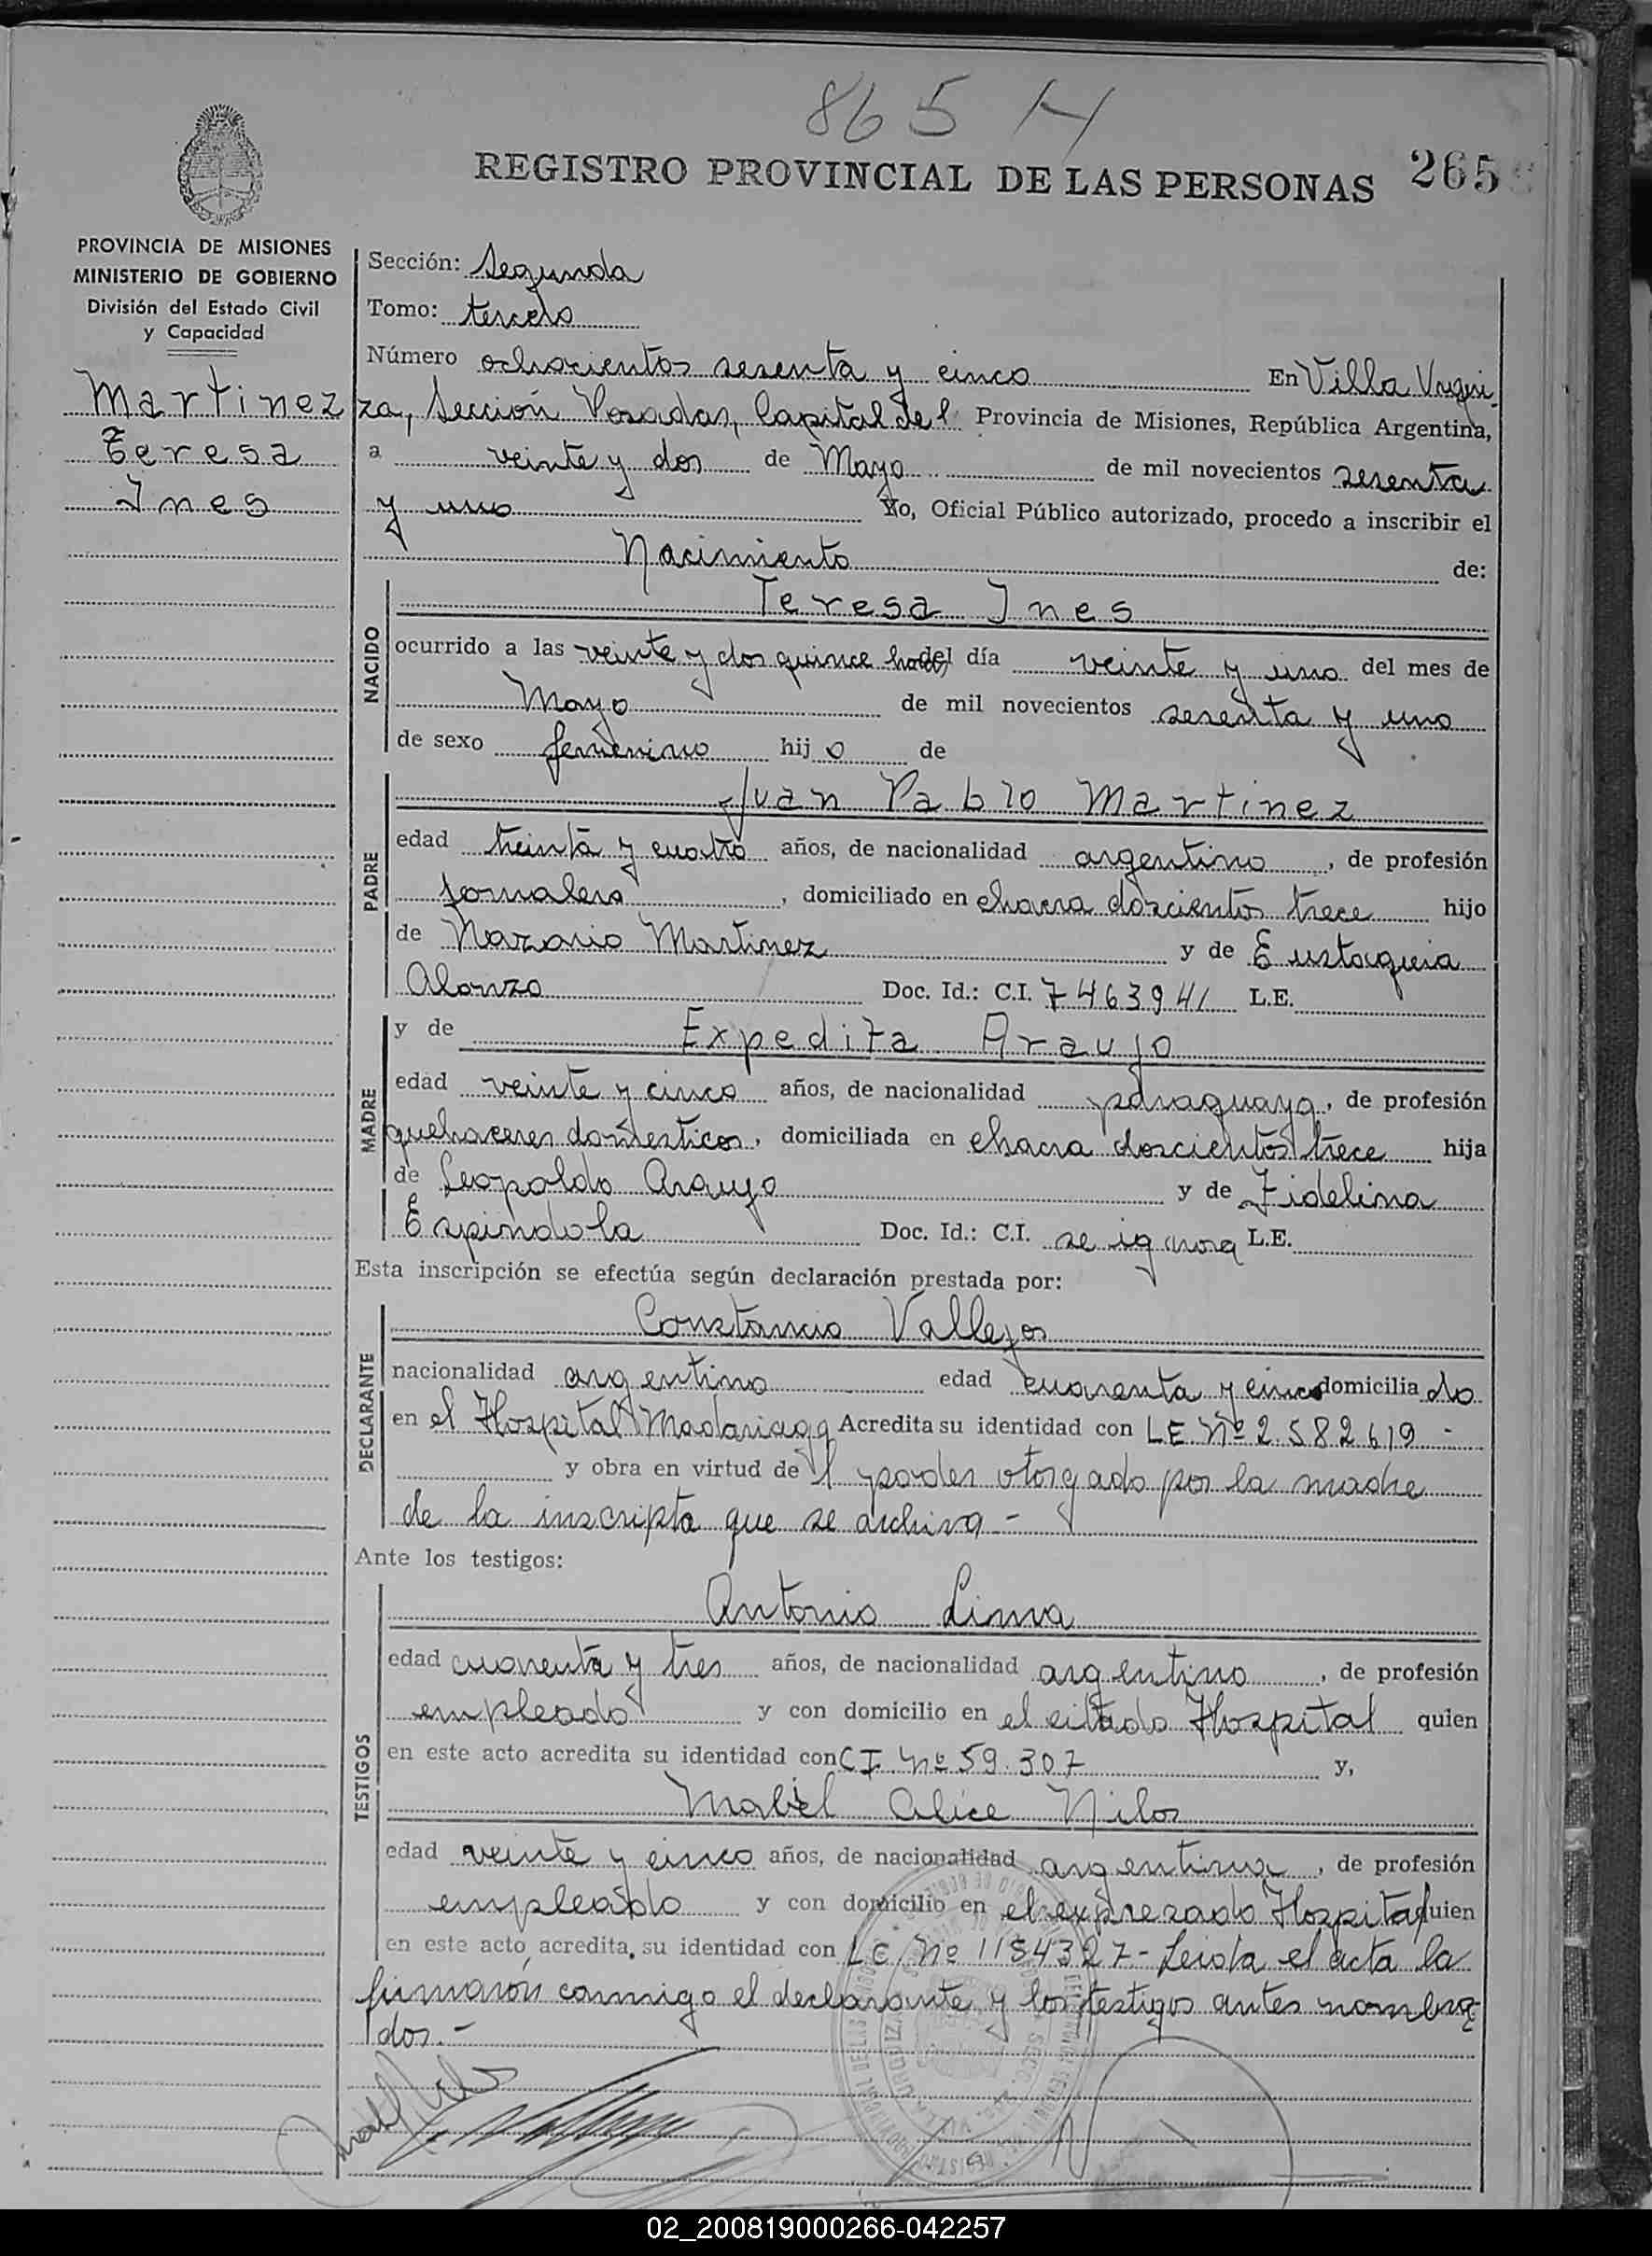 865 H
REGISTRO PROVINCIAL DE LAS PERSONAS 265
PROVINCIA DE MISIONES
MINISTERIO DE GOBIERNO
División del Estado Civil
y Capacidad
Martinez
Teresa
Ines
Sección: Segunda
Tomo: tercero
Número ochocientos sesenta y cinco En Villa Urqui
za, Sección Posadas, Capital de l Provincia de Misiones, República Argentina,
a veinte y dos de Mayo de mil novecientos sesenta
y uno Yo, Oficial Público autorizado, procedo a inscribir el
Nacimiento de:
NACIDO
Teresa Ines
ocurrido a las veinte y dos quince horas del día veinte y uno del mes de
Mayo de mil novecientos sesenta y uno
de sexo femenino hij o de
PADRE
Juan Pablo Martinez
edad treinta y cuatro años, de nacionalidad argentino, de profesión
jornalero, domiciliado en chacra doscientos trece hijo
de Nazario Martinez y de Eustaquia
Alonzo Doc. Id.: C.I. 7463941 L.E.
MADRE
y de Expedita Araujo
edad veinte y cinco años, de nacionalidad paraguaya, de profesión
quehaceres domesticos, domiciliada en chacra doscientos trece hija
de Leopoldo Araujo y de Fidelina
Espindola Doc. Id.: C.I. se ignora L.E.
Esta inscripción se efectúa según declaración prestada por:
DECLARANTE
Constancio Vallejos
nacionalidad argentino edad cuarenta y cinco domicilia do
en el Hospital Madariaga Acredita su identidad con LE Nº 2.582619 -
y obra en virtud de l poder otorgado por la madre
de la inscripta que se archiva -
Ante los testigos:
TESTIGOS
Antonio Lima
edad cuarenta y tres años, de nacionalidad argentino, de profesión
empleado y con domicilio en el citado Hospital quien
en este acto acredita su identidad con CI. Nº 59.307 y,
Mabel Alice Nilos
edad veinte y cinco años, de nacionalidad argentina, de profesión
empleado y con domicilio en el expresado Hospital quien
en este acto acredita su identidad con LC Nº 1184327 - Leida el acta la
firmaron conmigo el declarante y los testigos antes nombra
dos. -
02_200819000266-042257